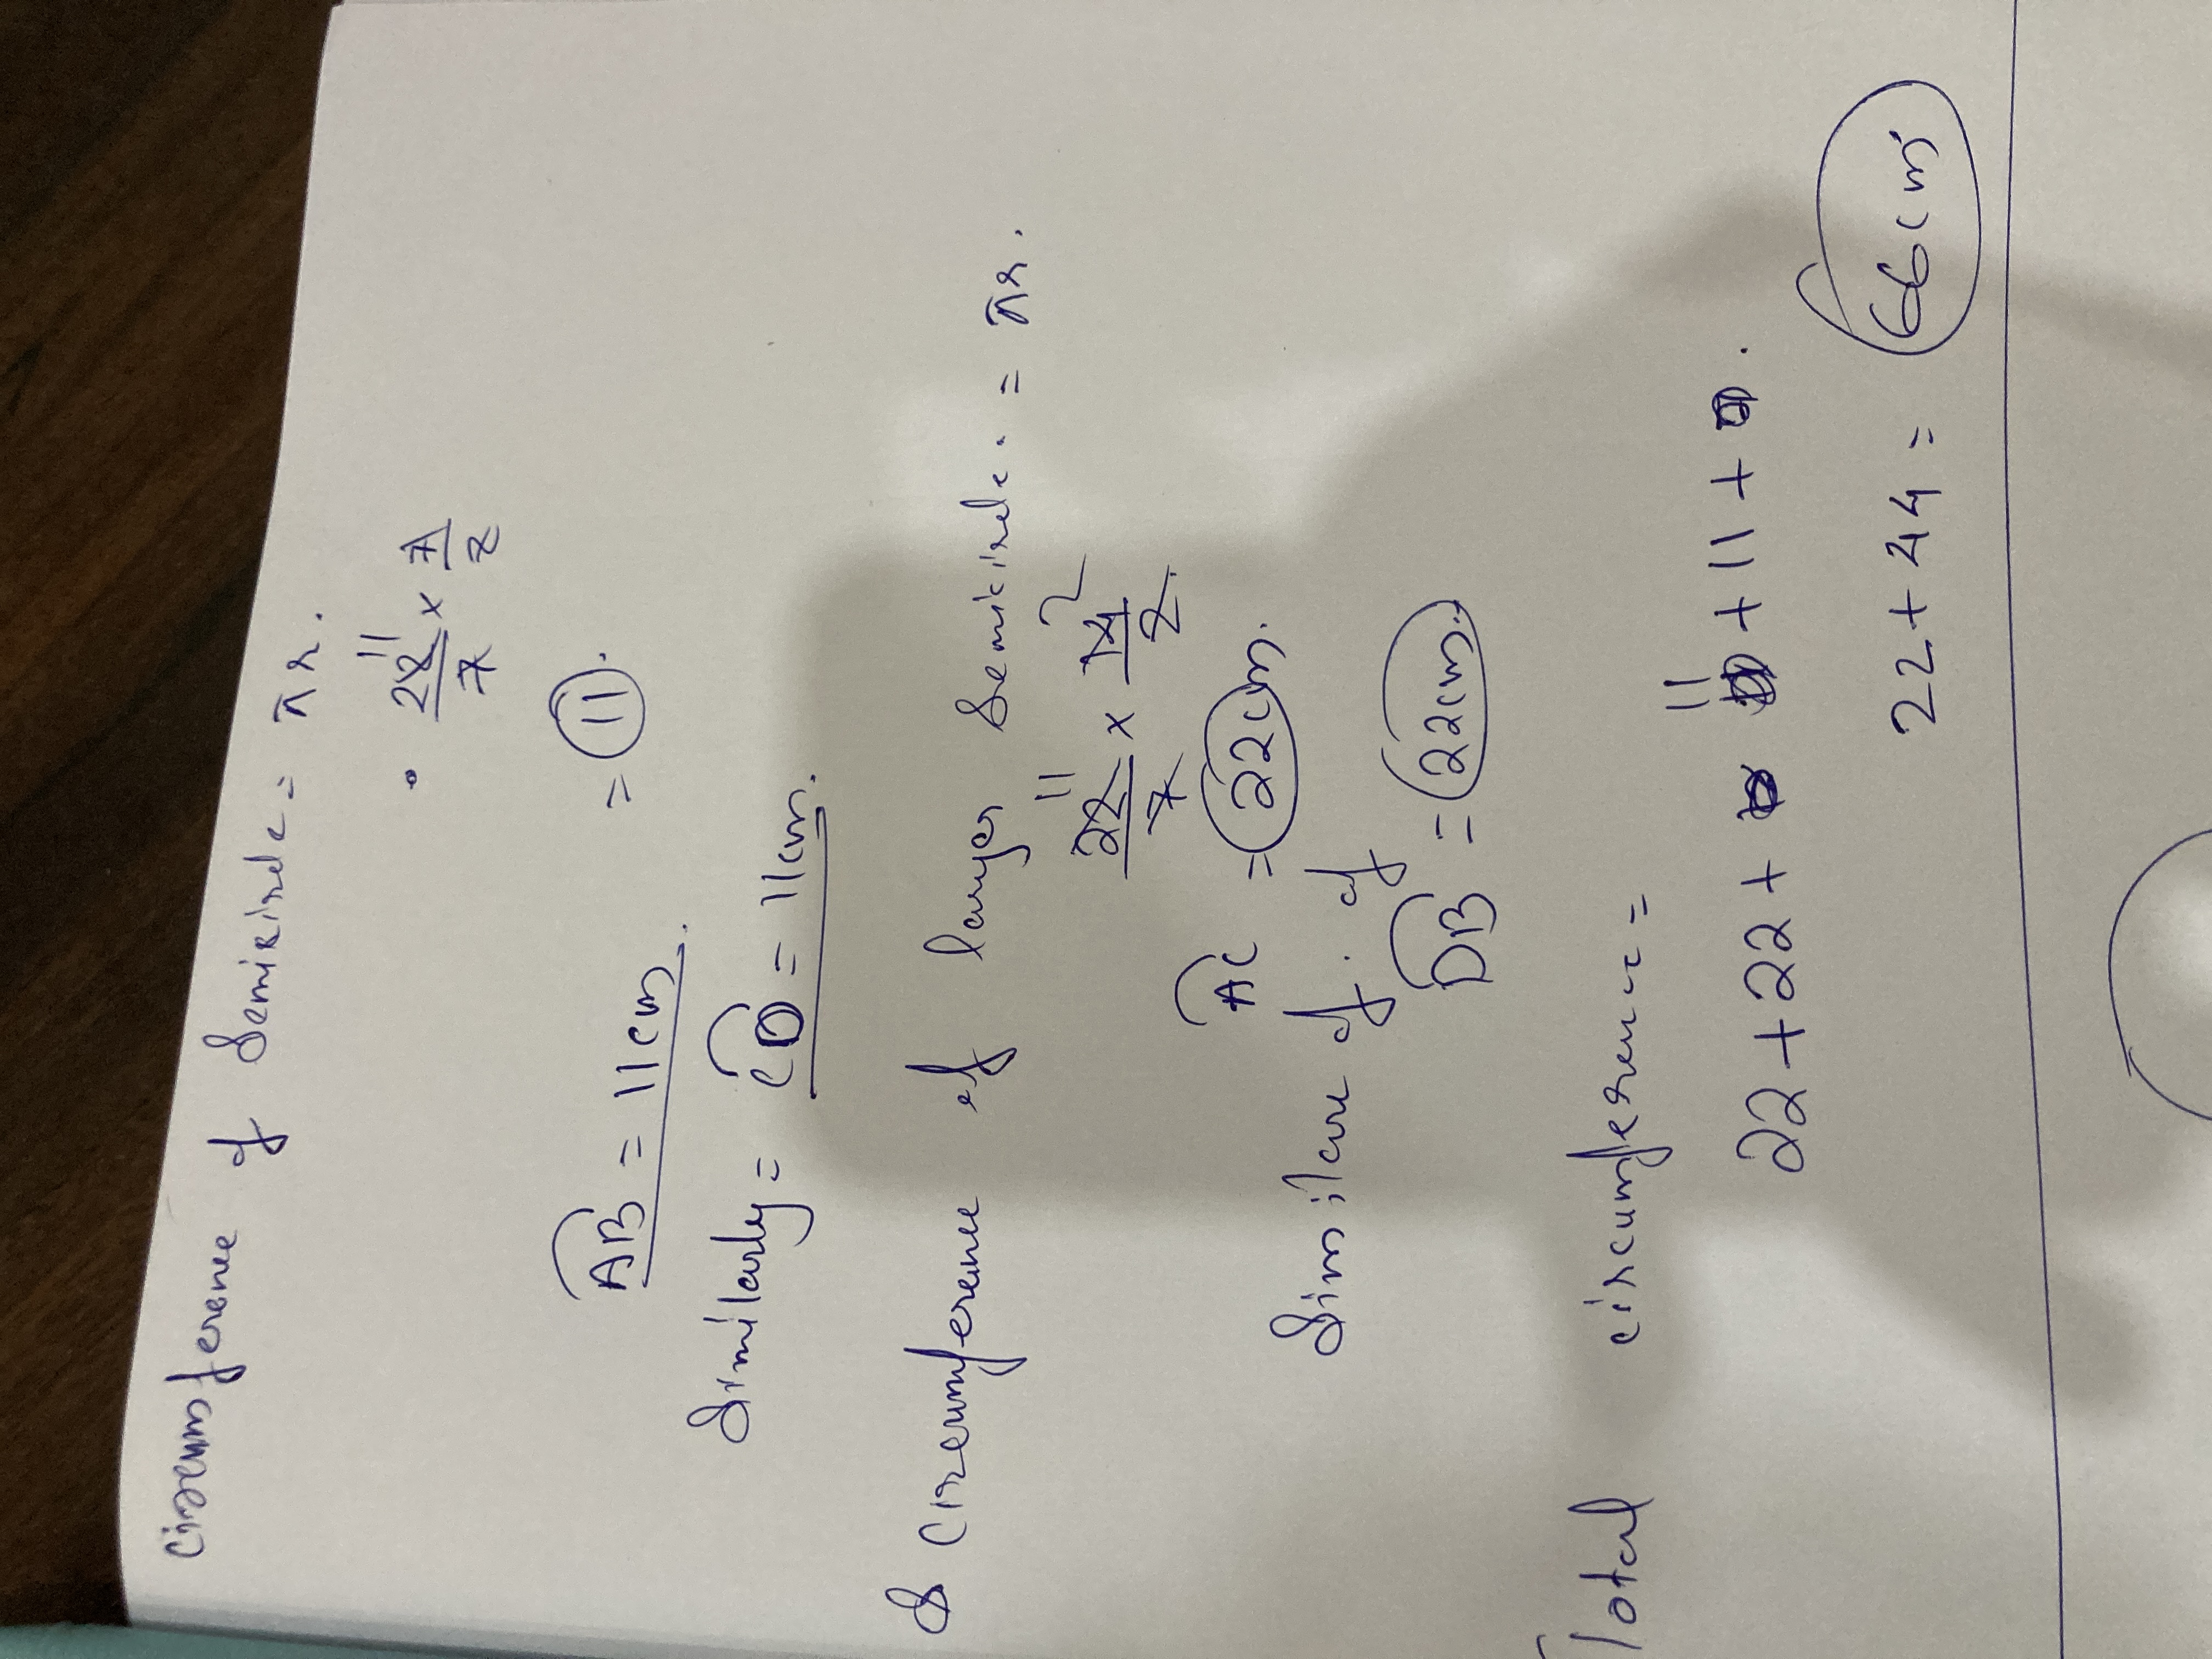 Circumference of Semicircle = πr.
22/7 11 × 7/2
= 11.
AB = 11cm.
Similarly = CD = 11cm.
Circumference of larger Semicircle. = πr.
22/7 11 × 14/2 2
AC = 22cm.
Similar of. of
DB = 22cm.
Total circumference =
22 + 22 + 11 + 11 + .
22 + 44 = 66cm